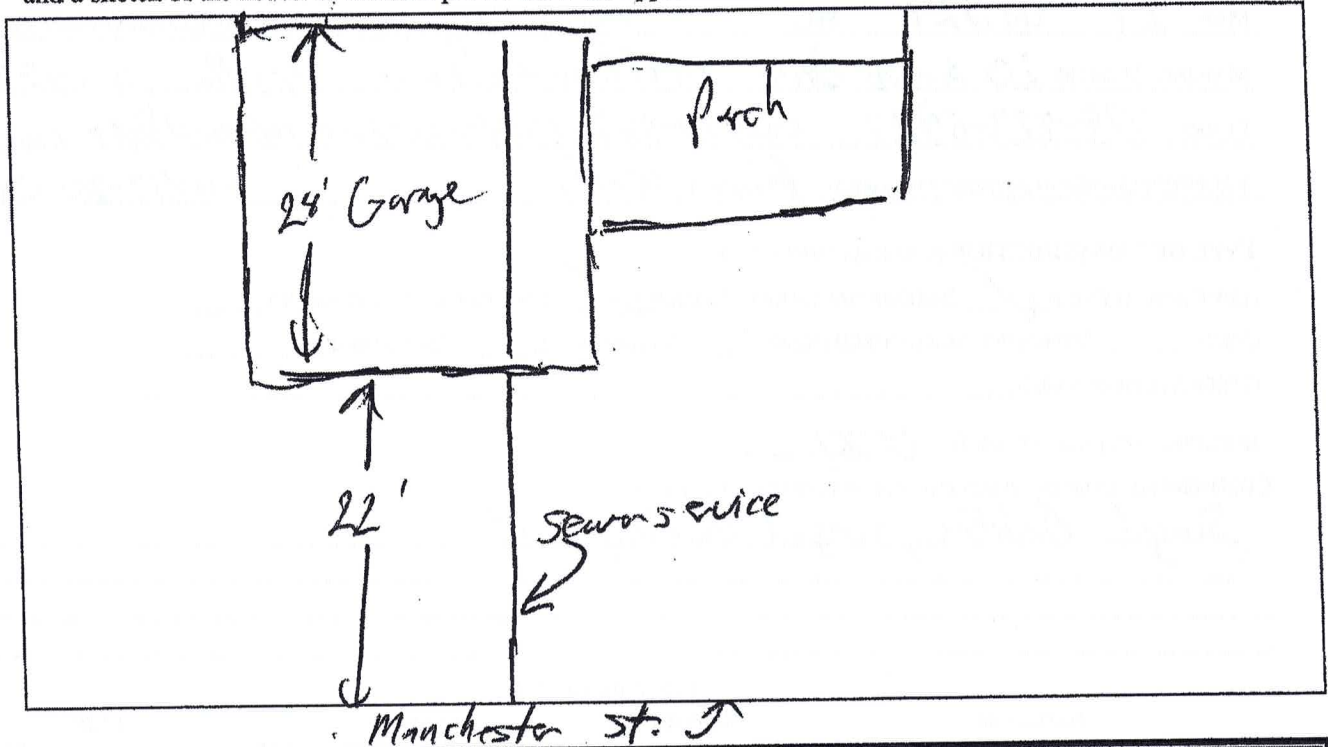 Porch
24' Garage
22'
sewer service
Manchester St.